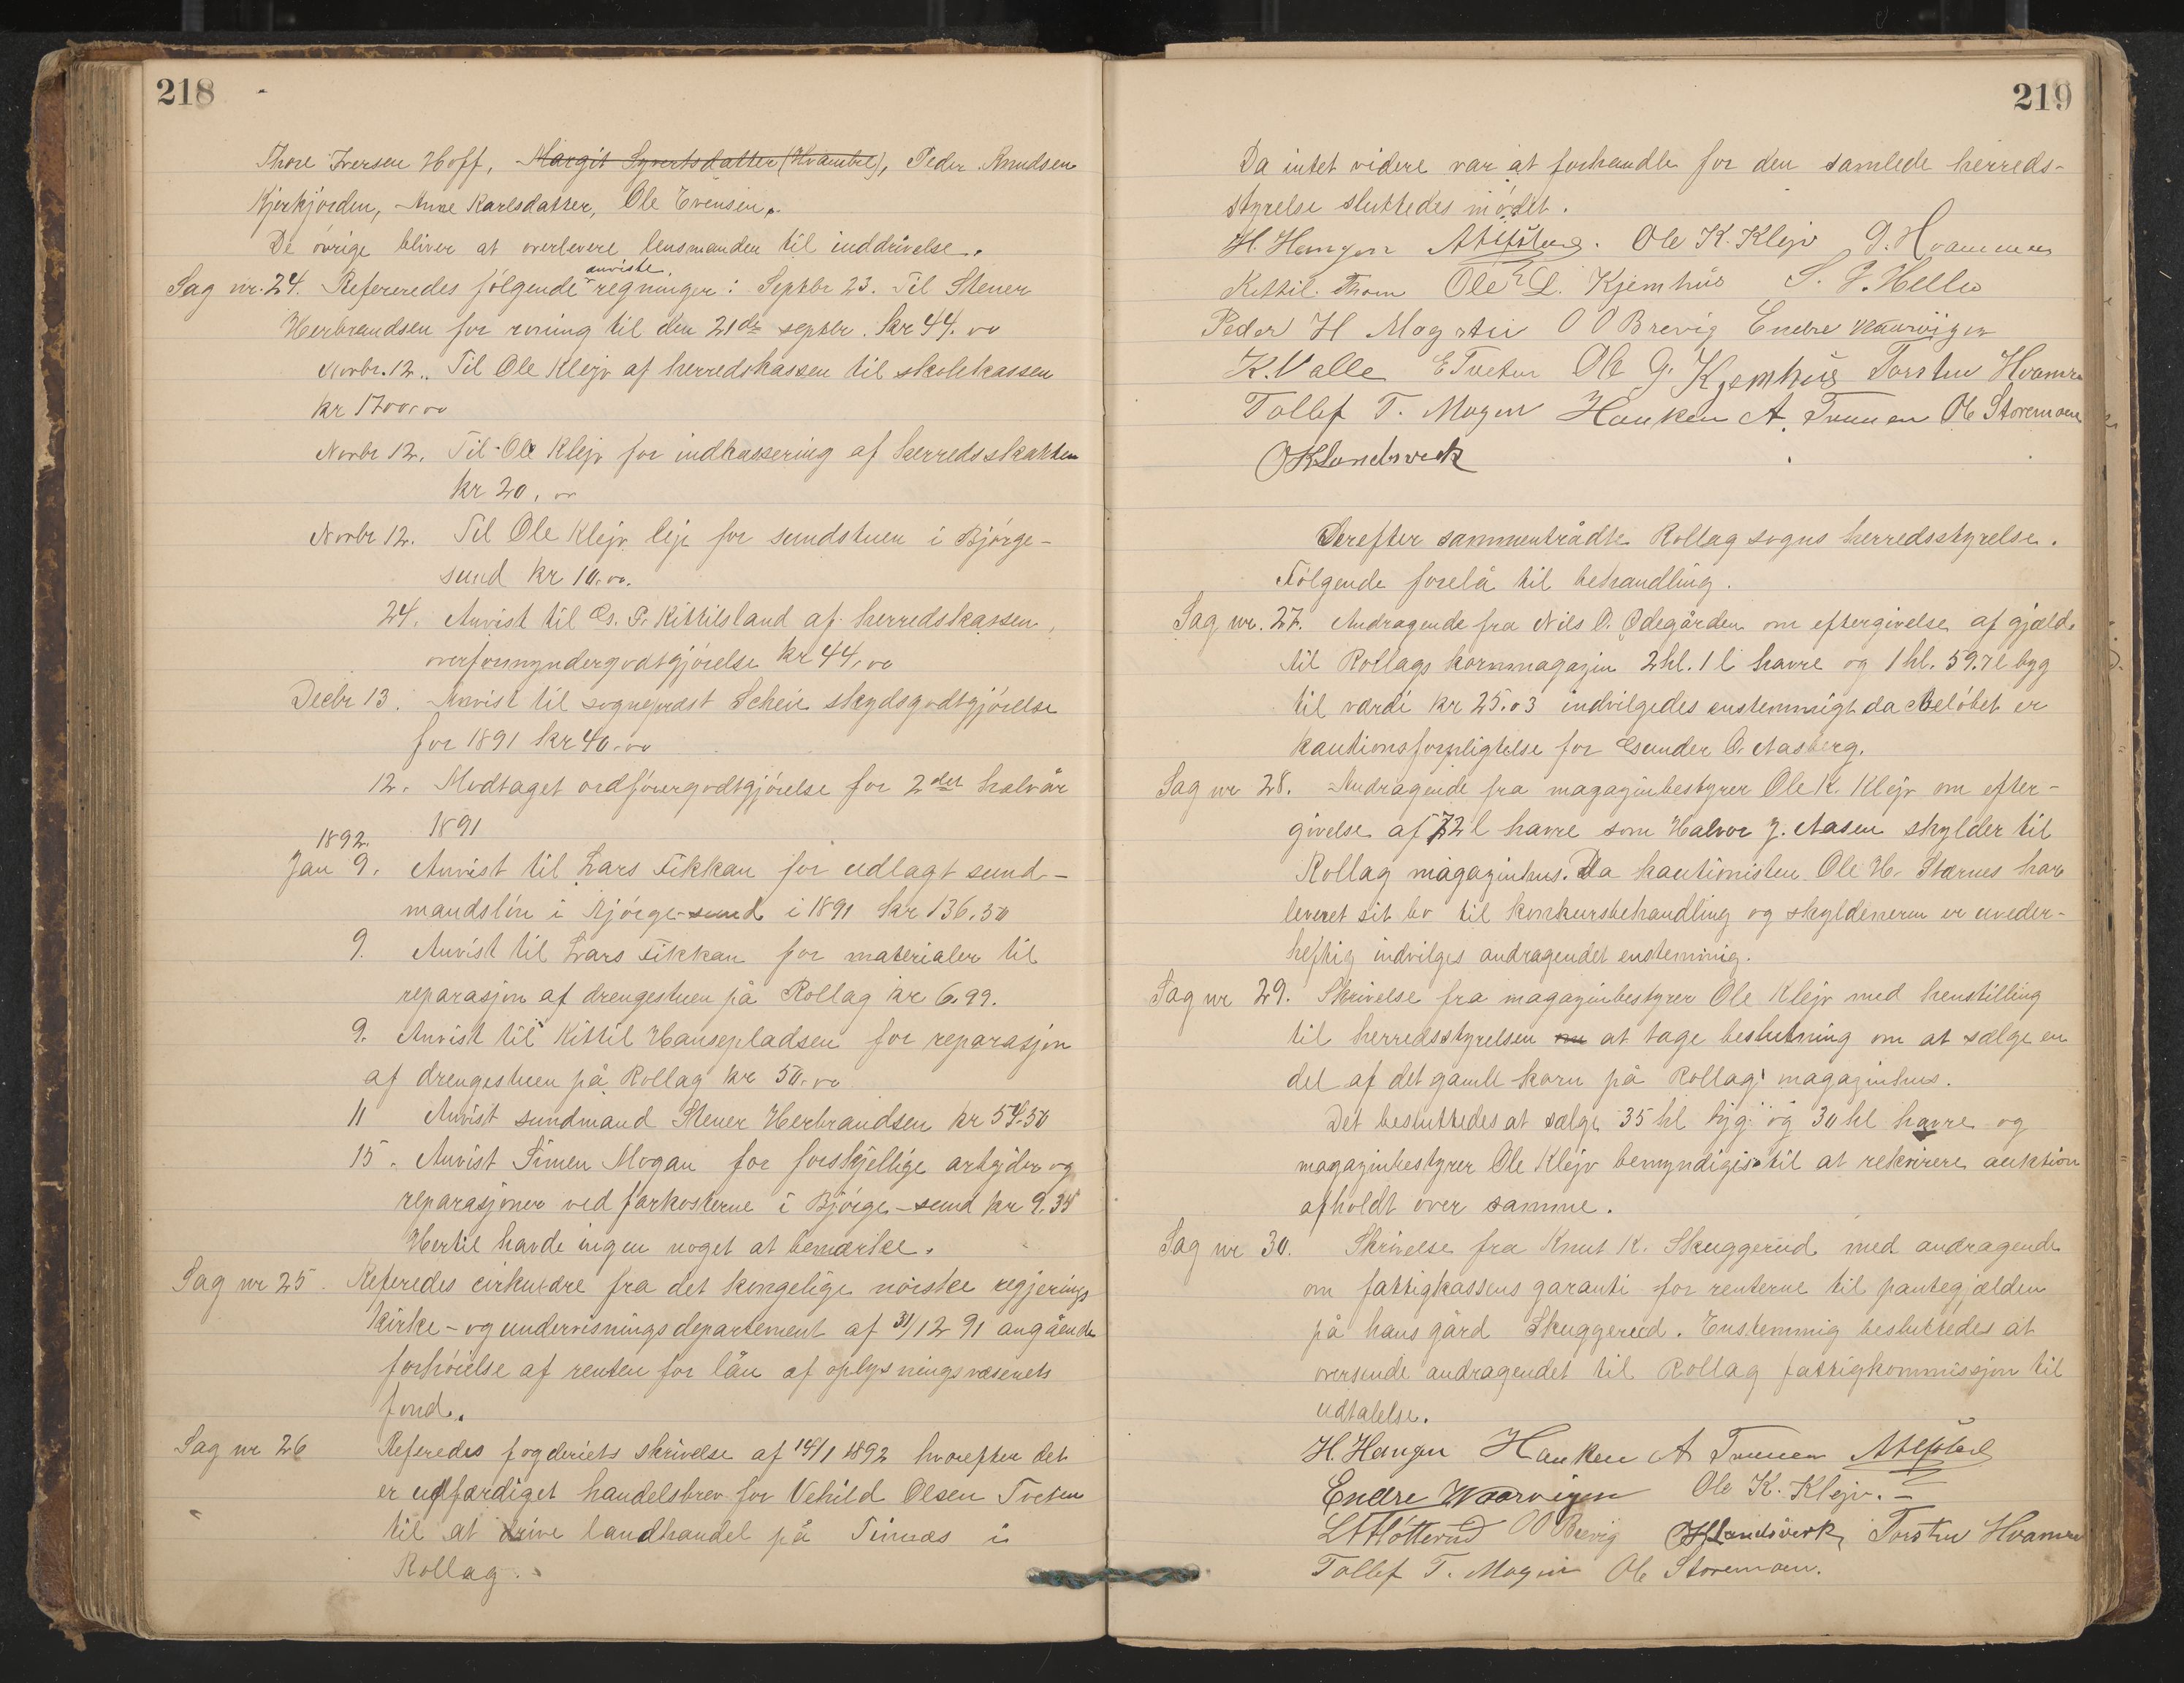 218
Thore Iversen Hoff, Margit Syvertsdatter (Hvambel), Peder Knudsen
Kjerkjorden, Anne Karlsdatter, Ole Evensen.
De övrige bliver at overlevere lensmanden til inddrivelse.
Sag nr. 24. Refereredes følgende anviste regninger: Septbr 23. Til Stener
Herbrandsen for roning til den 21de septbr. kr 44.00
Novbr. 12.. Til Ole Klejv af herredskassen til skolekassen
kr 1700.00
Novbr 12. Til Ole Klejv for indkassering af herredsskatten
kr 20,00
Novbr 12. Til Ole Klejv leje for sundstuen i Bjørge-
sund kr 10.00.
24. Anvist til G. P. Kittilsland af herredskassen,
overformyndergodtgjörelse kr 44,00
Decbr 13. Anvist til sognepræst Scheie skydsgodtgjörelse
for 1891 kr 40.00
12. Modtaget ordförergodtgjörelse for 2det halvår
1891
1892.
Jan 9. Anvist til Lars Fikkan for udlagt sund-
mandslön i Bjørge-sund i 1891 kr 136.50
9. Anvist til Lars Fikkan for materialer til
reparasjon af drengestuen på Rollag kr 6.99.
9. Anvist til Kittil Hansepladsen for reparasjon
af drengestuen på Rollag kr 50.00
11 Anvist sundmand Stener Herbrandsen kr 54.50
15. Anvist Simen Mogan for forskjellige arbejder og
reparasjoner ved farkosterne i Bjørge-sund kr 9.35
Hertil havde ingen noget at bemærke.
Sag nr 25. Referedes cirkulære fra det kongelige norske regjerings
kirke- og undervisningsdepartement af 31/12 91 angående
forhöielse af renten for lån af oplysningsvæsenets
fond.
Sag nr 26 Referedes fogderiets skrivelse af 14/1 1892 hvorefter det
er udfærdiget handelsbrev for Vehild Olsen Tveten
til at drive landhandel på Timæs i
Rollag.
219
Da intet videre var at forhandle for den samlede herreds-
styrelse sluttedes mödet.
H. Haugen Ole K. Klejv G. Hvammen
Kittil Thom Ole L. Kjemhus S. P. Helle
Peder H Mogstu O O Brevig Endre
K. Valle E Tveten Ole G. Kjemhus Torsten Hvamm
Tollef T. Mogen Hauken A. Ole Storemoen
O K Landsverk
Derefter sammentrådte Rollag sogns herredsstyrelse.
Følgende forelå til behandling.
Sag nr. 27. Andragende fra Nils O. Ødegården om eftergivelse af gjæld
til Rollags kornmagazin 2hl. 1 l havre og 1 hl. 59.7 l byg
til værdi kr 25.03 indvilgedes enstemmigt da Belöbet er
kautionsforpligtelse for Gunder O. Aasberg.
Sag nr 28. Andragende fra magazinbestyrer Ole K. Klejv om efter-
givelse af 72 l havre som Halvor J. Aasen skylder til
Rollag magazinhus. Da kautionisten Ole H. Stærnes har
leveret sit bo til konkursbehandling og skyldneren er uveder-
heftig indvilges andragendet enstemmig.
Sag nr 29. Skrivelse fra magazinbestyrer Ole Klejv med henstilling
til herredsstyrelsen om at tage beslutning om at sælge en
del af det gamle korn på Rollag magazinhus.
Det besluttedes at sælge 35 hl byg og 30 hl havre og
magazinbestyrer Ole Klejv bemyndiges til at rekvirere auktion
afholdt over samme.
Sag nr 30. Skrivelse fra Knut K. Skuggerud med andragende
om fattigkassens garanti for renterne til pantegjælden
på hans gård Skuggerud. Enstemmig besluttedes at
oversende andragendet til Rollag fattigkommissjon til
udtalelse.
H. Haugen Hauken A
Endre Ole K. Klejv.
O O Brevig O K Landsverk Torsten Hvamm
Tollef T. Mogen Ole Storemoen.